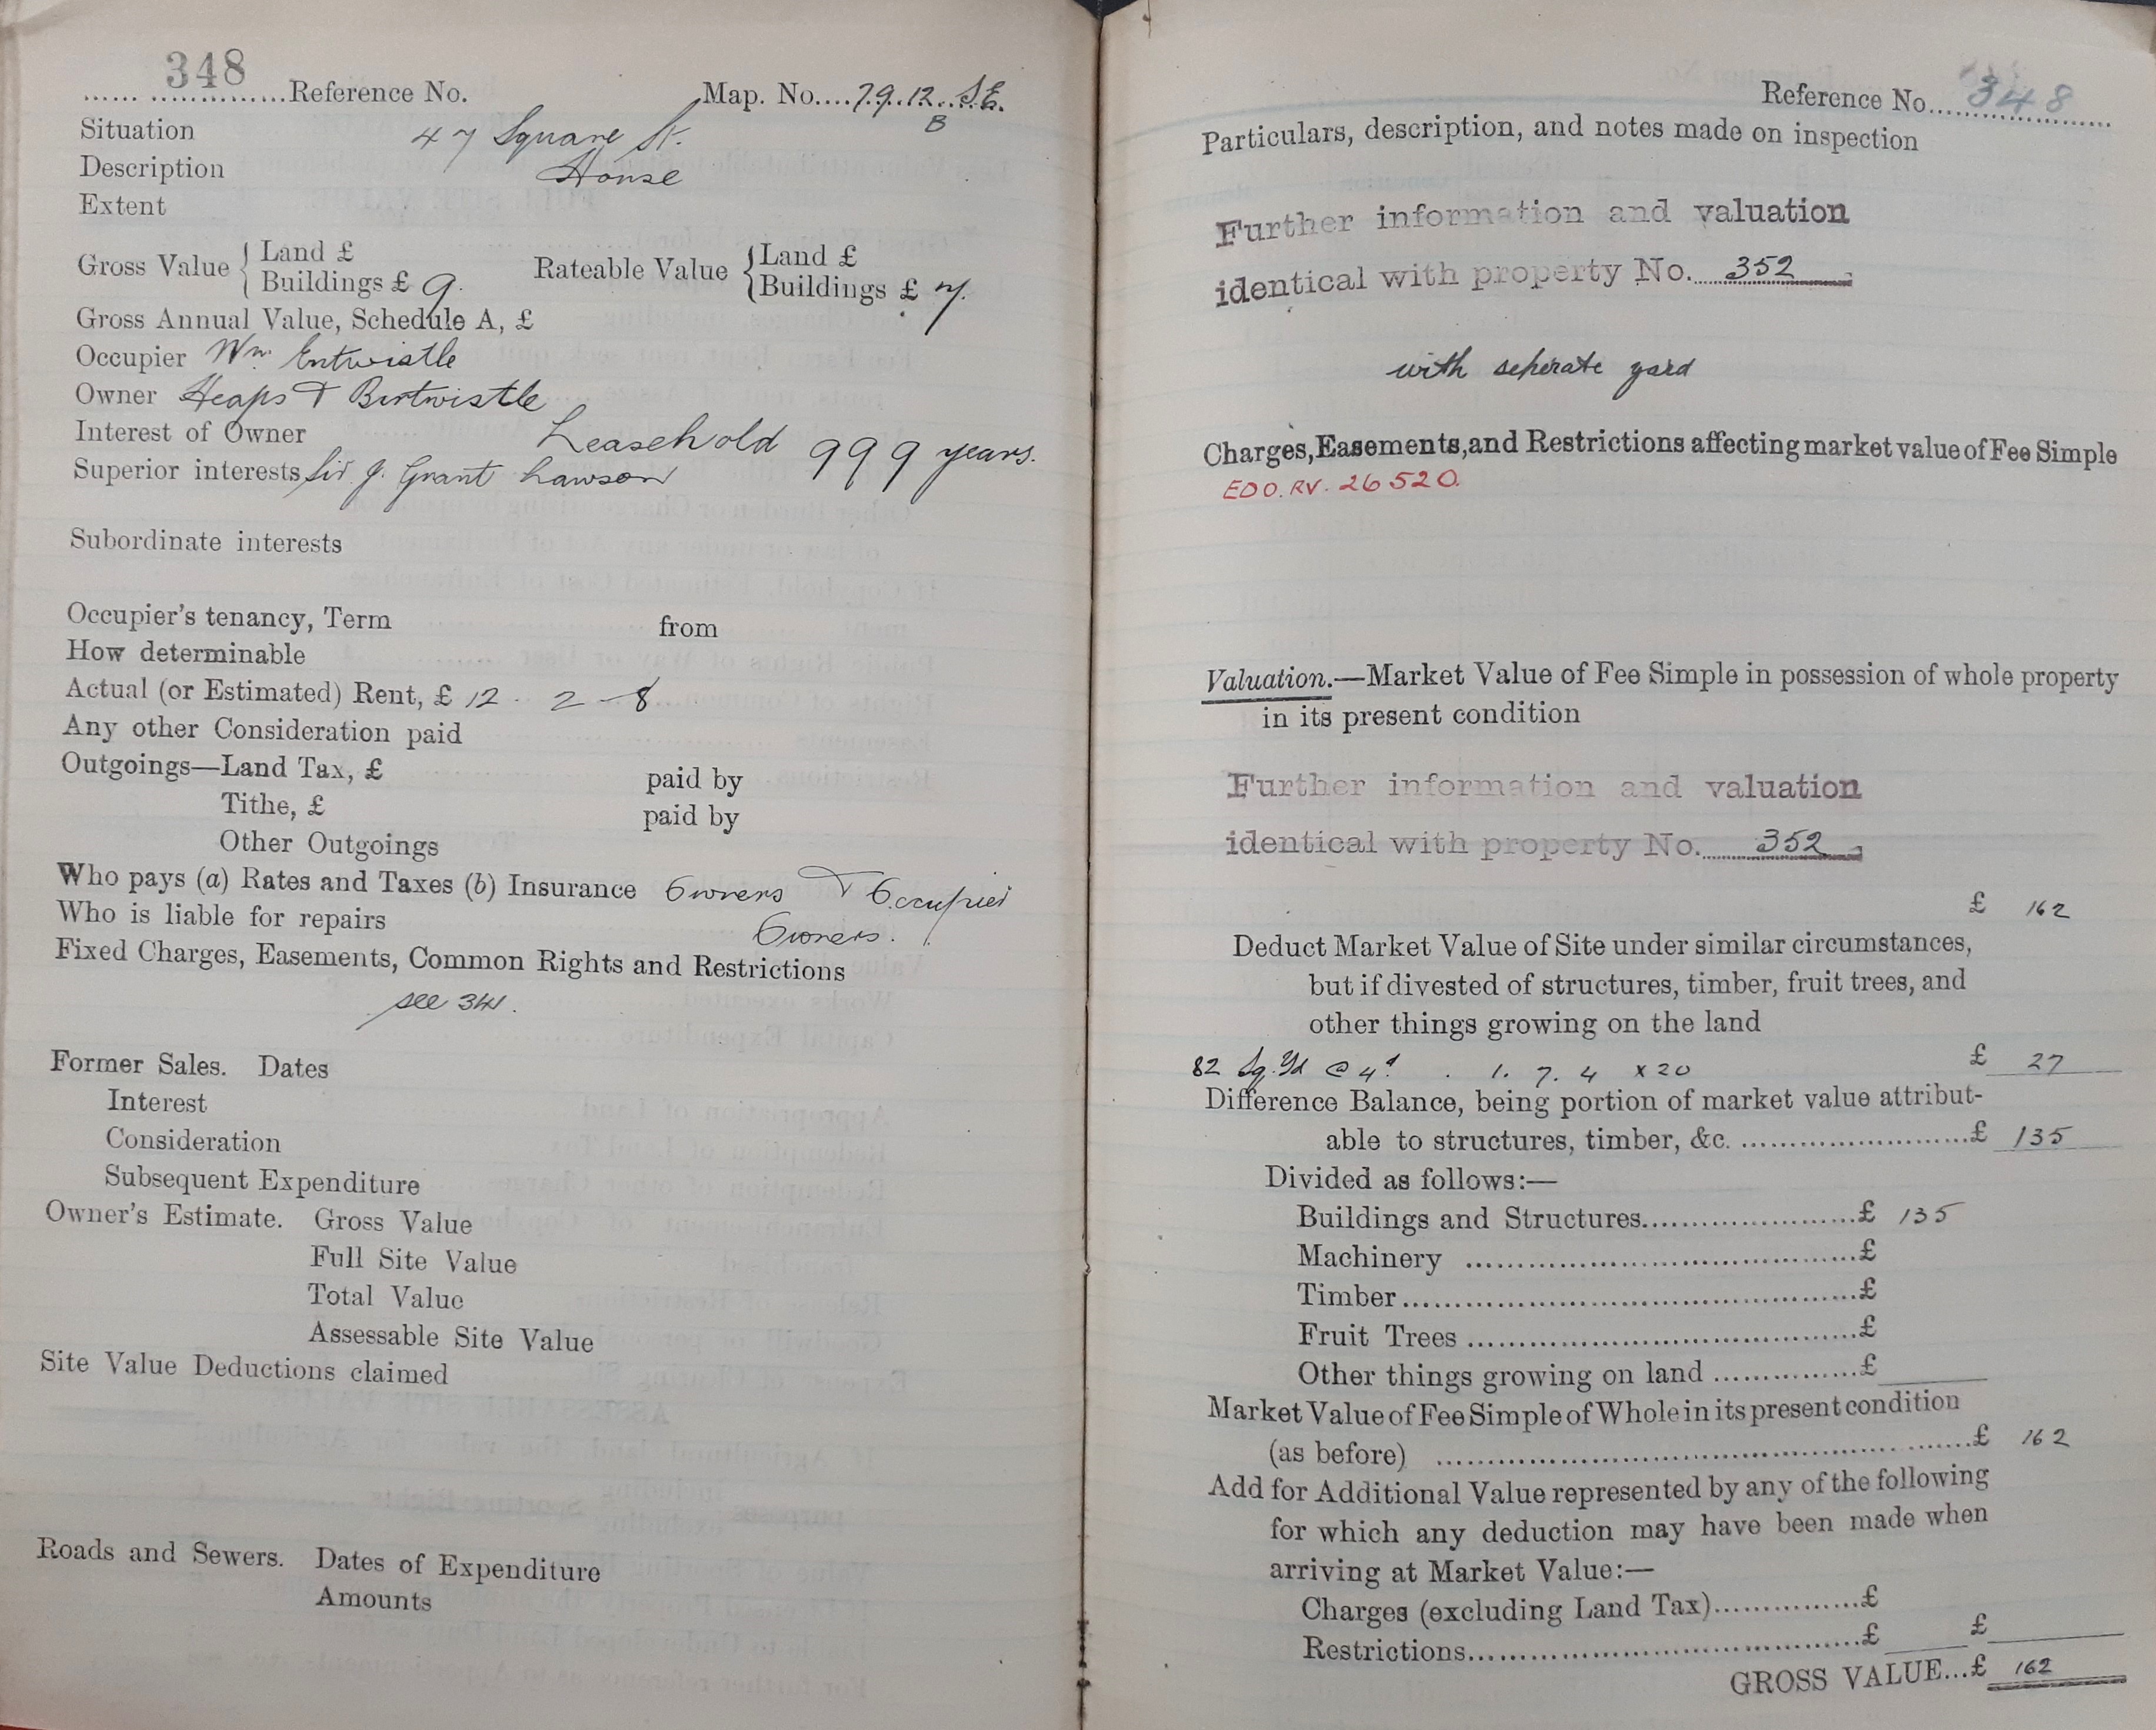 348
...... ..............Reference No. Map. No....79.12..S.E.
B
Situation 47 Square St.
Description House
Extent
Gross Value { Land £ Rateable Value { Land £
Buildings £ 9. Buildings £ 7.
Gross Annual Value, Schedule A, £
Occupier Wm. Entwistle
Owner Heaps & Birtwistle
Interest of Owner Leasehold 999 years.
Superior interests Sir J. Grant Lawson
Subordinate interests
Occupier's tenancy, Term from
How determinable
Actual (or Estimated) Rent, £ 12 - 2 - 8
Any other Consideration paid
Outgoings—Land Tax, £ paid by
Tithe, £ paid by
Other Outgoings
Who pays (a) Rates and Taxes (b) Insurance Owners & Occupier
Who is liable for repairs Owners.
Fixed Charges, Easements, Common Rights and Restrictions
see 341.
Former Sales. Dates
Interest
Consideration
Subsequent Expenditure
Owner's Estimate. Gross Value
Full Site Value
Total Value
Assessable Site Value
Site Value Deductions claimed
Roads and Sewers. Dates of Expenditure
Amounts
Reference No....348
Particulars, description, and notes made on inspection
Further information and valuation
identical with property No. 352
with seperate yard
Charges, Easements, and Restrictions affecting market value of Fee Simple
EDO. RV. 26520.
Valuation.—Market Value of Fee Simple in possession of whole property
in its present condition
Further information and valuation
identical with property No. 352
£ 162
Deduct Market Value of Site under similar circumstances,
but if divested of structures, timber, fruit trees, and
other things growing on the land
82 Sq. Yd @ 4d. 1. 7. 4 x 20 £ 27
Difference Balance, being portion of market value attribut-
able to structures, timber, &c. ........................£ 135
Divided as follows:—
Buildings and Structures......................£ 135
Machinery ........................................£
Timber..............................................£
Fruit Trees .......................................£
Other things growing on land ...............£
Market Value of Fee Simple of Whole in its present condition
(as before) .....................................................£ 162
Add for Additional Value represented by any of the following
for which any deduction may have been made when
arriving at Market Value:—
Charges (excluding Land Tax)...............£
Restrictions.......................................£ £
GROSS VALUE...£ 162